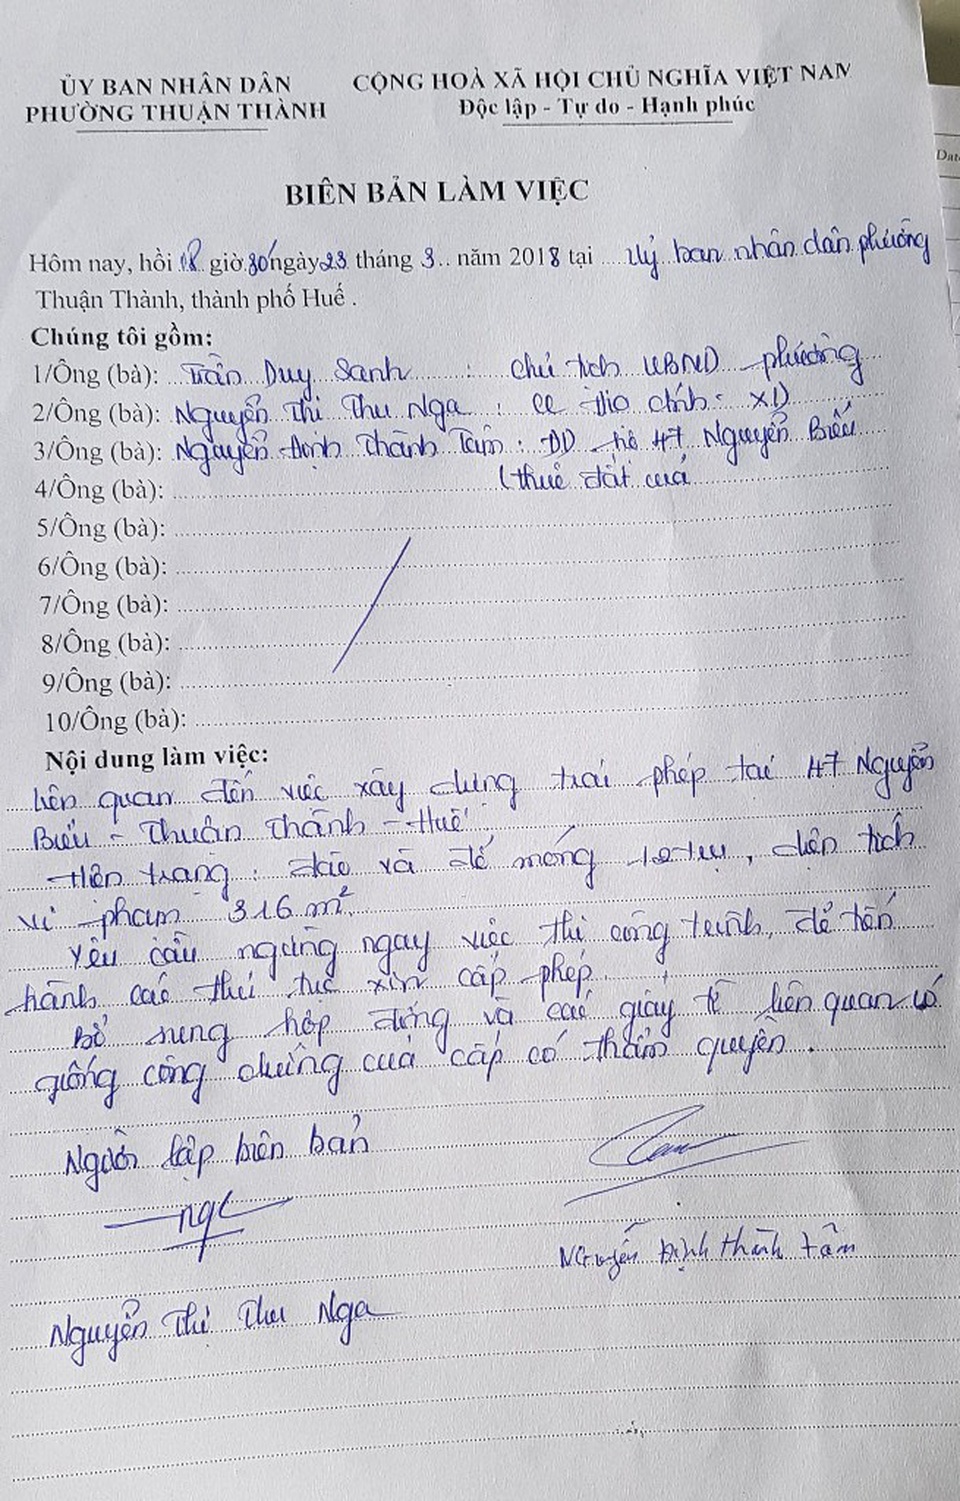 ỦY BAN NHÂN DÂN
PHƯỜNG THUẬN THÀNH
CỘNG HOÀ XÃ HỘI CHỦ NGHĨA VIỆT NAM
Độc lập - Tự do - Hạnh phúc
Date
BIÊN BẢN LÀM VIỆC
Hôm nay, hồi 08 giờ 30' ngày 23 tháng 3 năm 2018 tại Uỷ ban nhân dân phường
Thuận Thành, thành phố Huế .
Chúng tôi gồm:
1/Ông (bà): Trần Duy Sanh : Chủ tịch UBND phường
2/Ông (bà): Nguyễn Thị Thu Nga : CC Địa chính - XD
3/Ông (bà): Nguyễn Định Thành Tâm : DD hộ 47 Nguyễn Biểu
4/Ông (bà): (thuê đất của
5/Ông (bà):
6/Ông (bà):
7/Ông (bà):
8/Ông (bà):
9/Ông (bà):
10/Ông (bà):
Nội dung làm việc:
Liên quan đến việc xây dựng trái phép tại 47 Nguyễn
Biểu - Thuận Thành - Huế.
Hiện trạng : đào và đổ móng trụ, diện tích
vi phạm 316 m²
Yêu cầu ngừng ngay việc thi công trình, để tiến
hành các thủ tục xin cấp phép.
Bổ sung hợp đồng và các giấy tờ liên quan có
giống công chứng của cấp có thẩm quyền .
Người lập biên bản
Nguyễn Định Thành Tâm
Nguyễn Thị Thu Nga